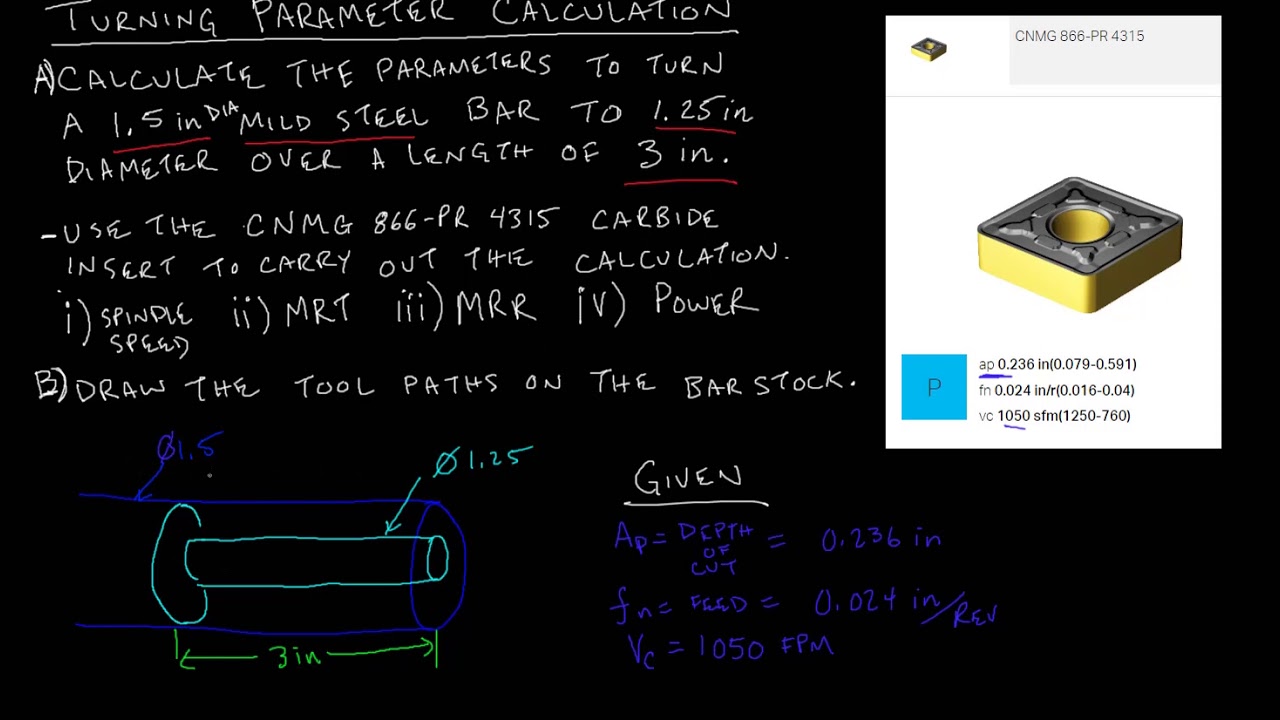 TURNING PARAMETER CALCULATION
A) CALCULATE THE PARAMETERS TO TURN
A 1.5 in DIA MILD STEEL BAR TO 1.25 in
DIAMETER OVER A LENGTH OF 3 in.
- USE THE CNMG 866-PR 4315 CARBIDE
INSERT TO CARRY OUT THE CALCULATION.
i) SPINDLE SPEED ii) MRT iii) MRR iv) POWER
B) DRAW THE TOOL PATHS ON THE BAR STOCK.
Ø1.5
Ø1.25
3 in
GIVEN
Ap = DEPTH OF CUT = 0.236 in
fn = FEED = 0.024 in/REV
Vc = 1050 FPM
CNMG 866-PR 4315
P
ap 0.236 in(0.079-0.591)
fn 0.024 in/r(0.016-0.04)
vc 1050 sfm(1250-760)